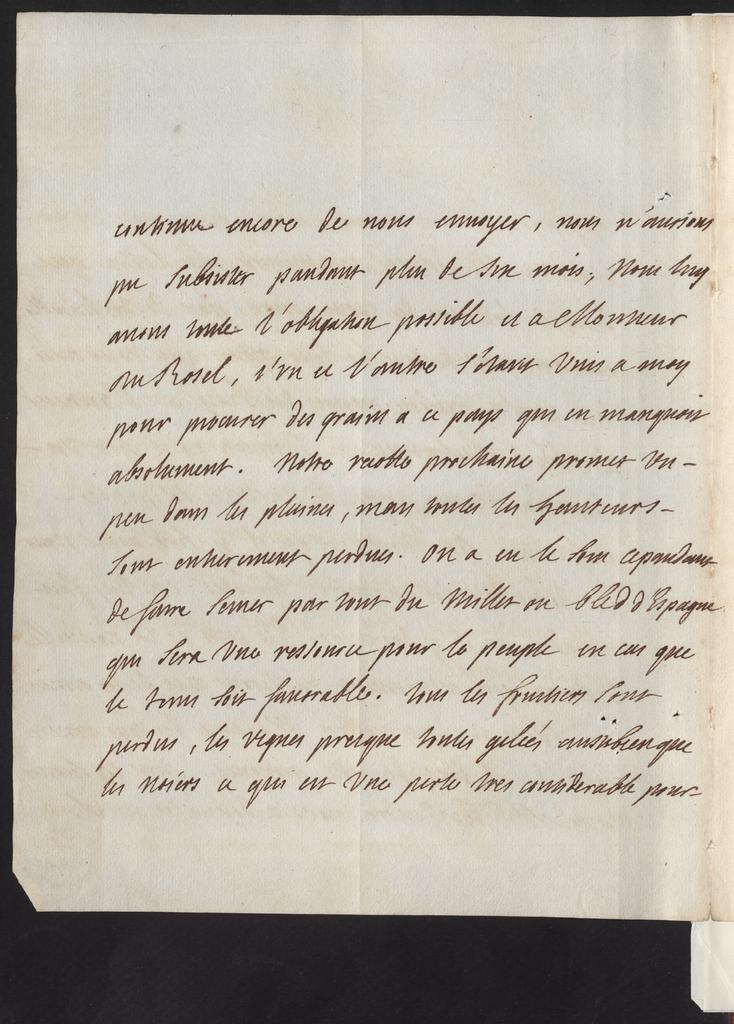 continue encore de nous envoyer, nous n'aurions
pu Subsister pandant plus de six mois, Nous luy
avons toute l'obligation possible et a Monsieur
du Rosel, l'un et l'autre s'étant Unis a moy
pour procurer des grains a ce pays qui en manquoit
absolument. Notre recolte prochaine promet un-
peu dans les plaines, mais toutes les hauteurs-
Sont entierement perdues. On a eu le soin cependant
de faire Semer par tout du Millet ou bled d'Espagne
qui Sera Une ressource pour le peuple en cas que
le tems soit favorable. tous les fruitiers Sont
perdus, les vignes presque toutes gelées aussibienque
les Noiers ce qui est Une perte tres considerable pour-